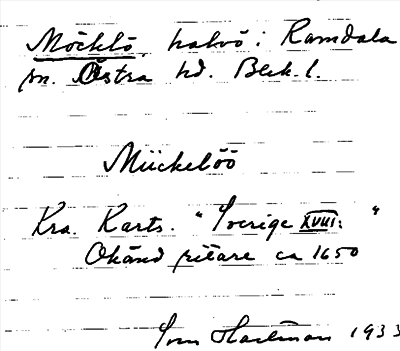 Möcklö, halvö i Ramdala
sn. Östra hd. Blek. l.
Mückelöö
Kra. Karts. "Sverige XVIII: "
Okänd ritare ca 1650
Hartman 1933